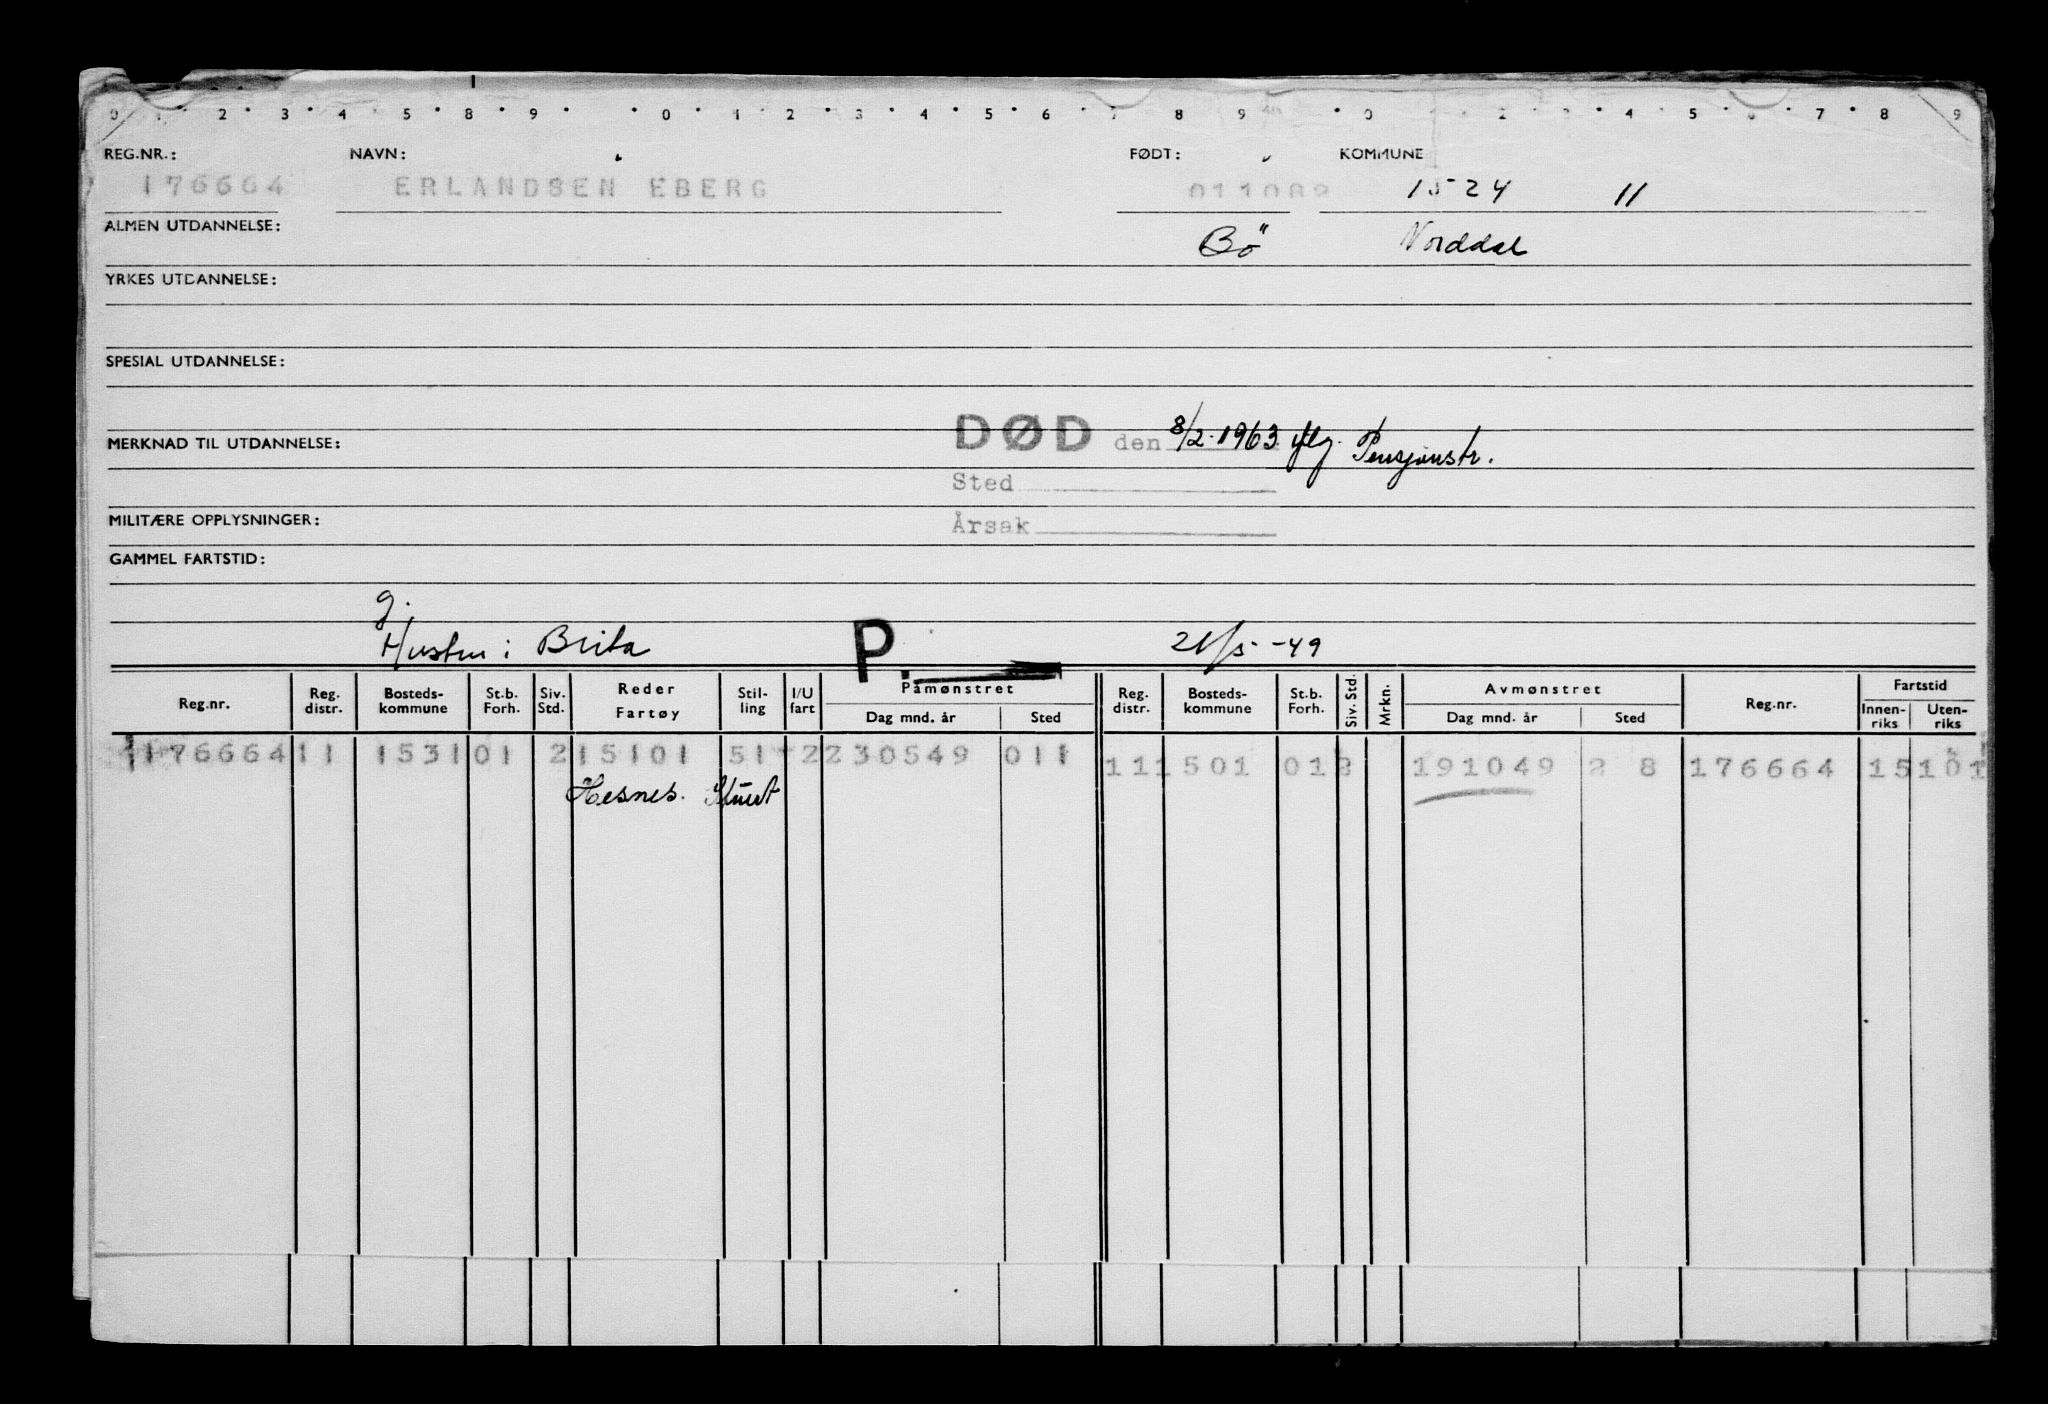 0 1 2 3 4 5 6 8 9 0 1 2 3 4 5 6 7 8 9 0 2 3 4 5 6 7 8 9
REG.NR.: NAVN: FØDT: KOMMUNE
176664 ERLANDSEN EBERG 011082 1524 11
ALMEN UTDANNELSE: Bö Norddal
YRKES UTDANNELSE:
SPESIAL UTDANNELSE:
MERKNAD TIL UTDANNELSE: DØD den 8/2-1963 iflg. Pensjonstr.
Sted
MILITÆRE OPPLYSNINGER: Årsak
GAMMEL FARTSTID:
g.
Hustru: Brita P. 21/5-49
Reg.nr. Reg. distr. Bosteds-kommune St.b. Forh. Siv. Std. Reder Fartøy Stil-ling I/U fart Påmønstret Dag mnd. år Sted Reg. distr. Bosteds-kommune St.b. Forh. Siv. Std. Mrkn. Avmønstret Dag mnd. år Sted Reg.nr. Fartstid Innen-riks Uten-riks
176664 11 1531 01 2 15101 51 2 230549 011
111501 012 191049 2 8 176664 15101
Hesnes. Stuert